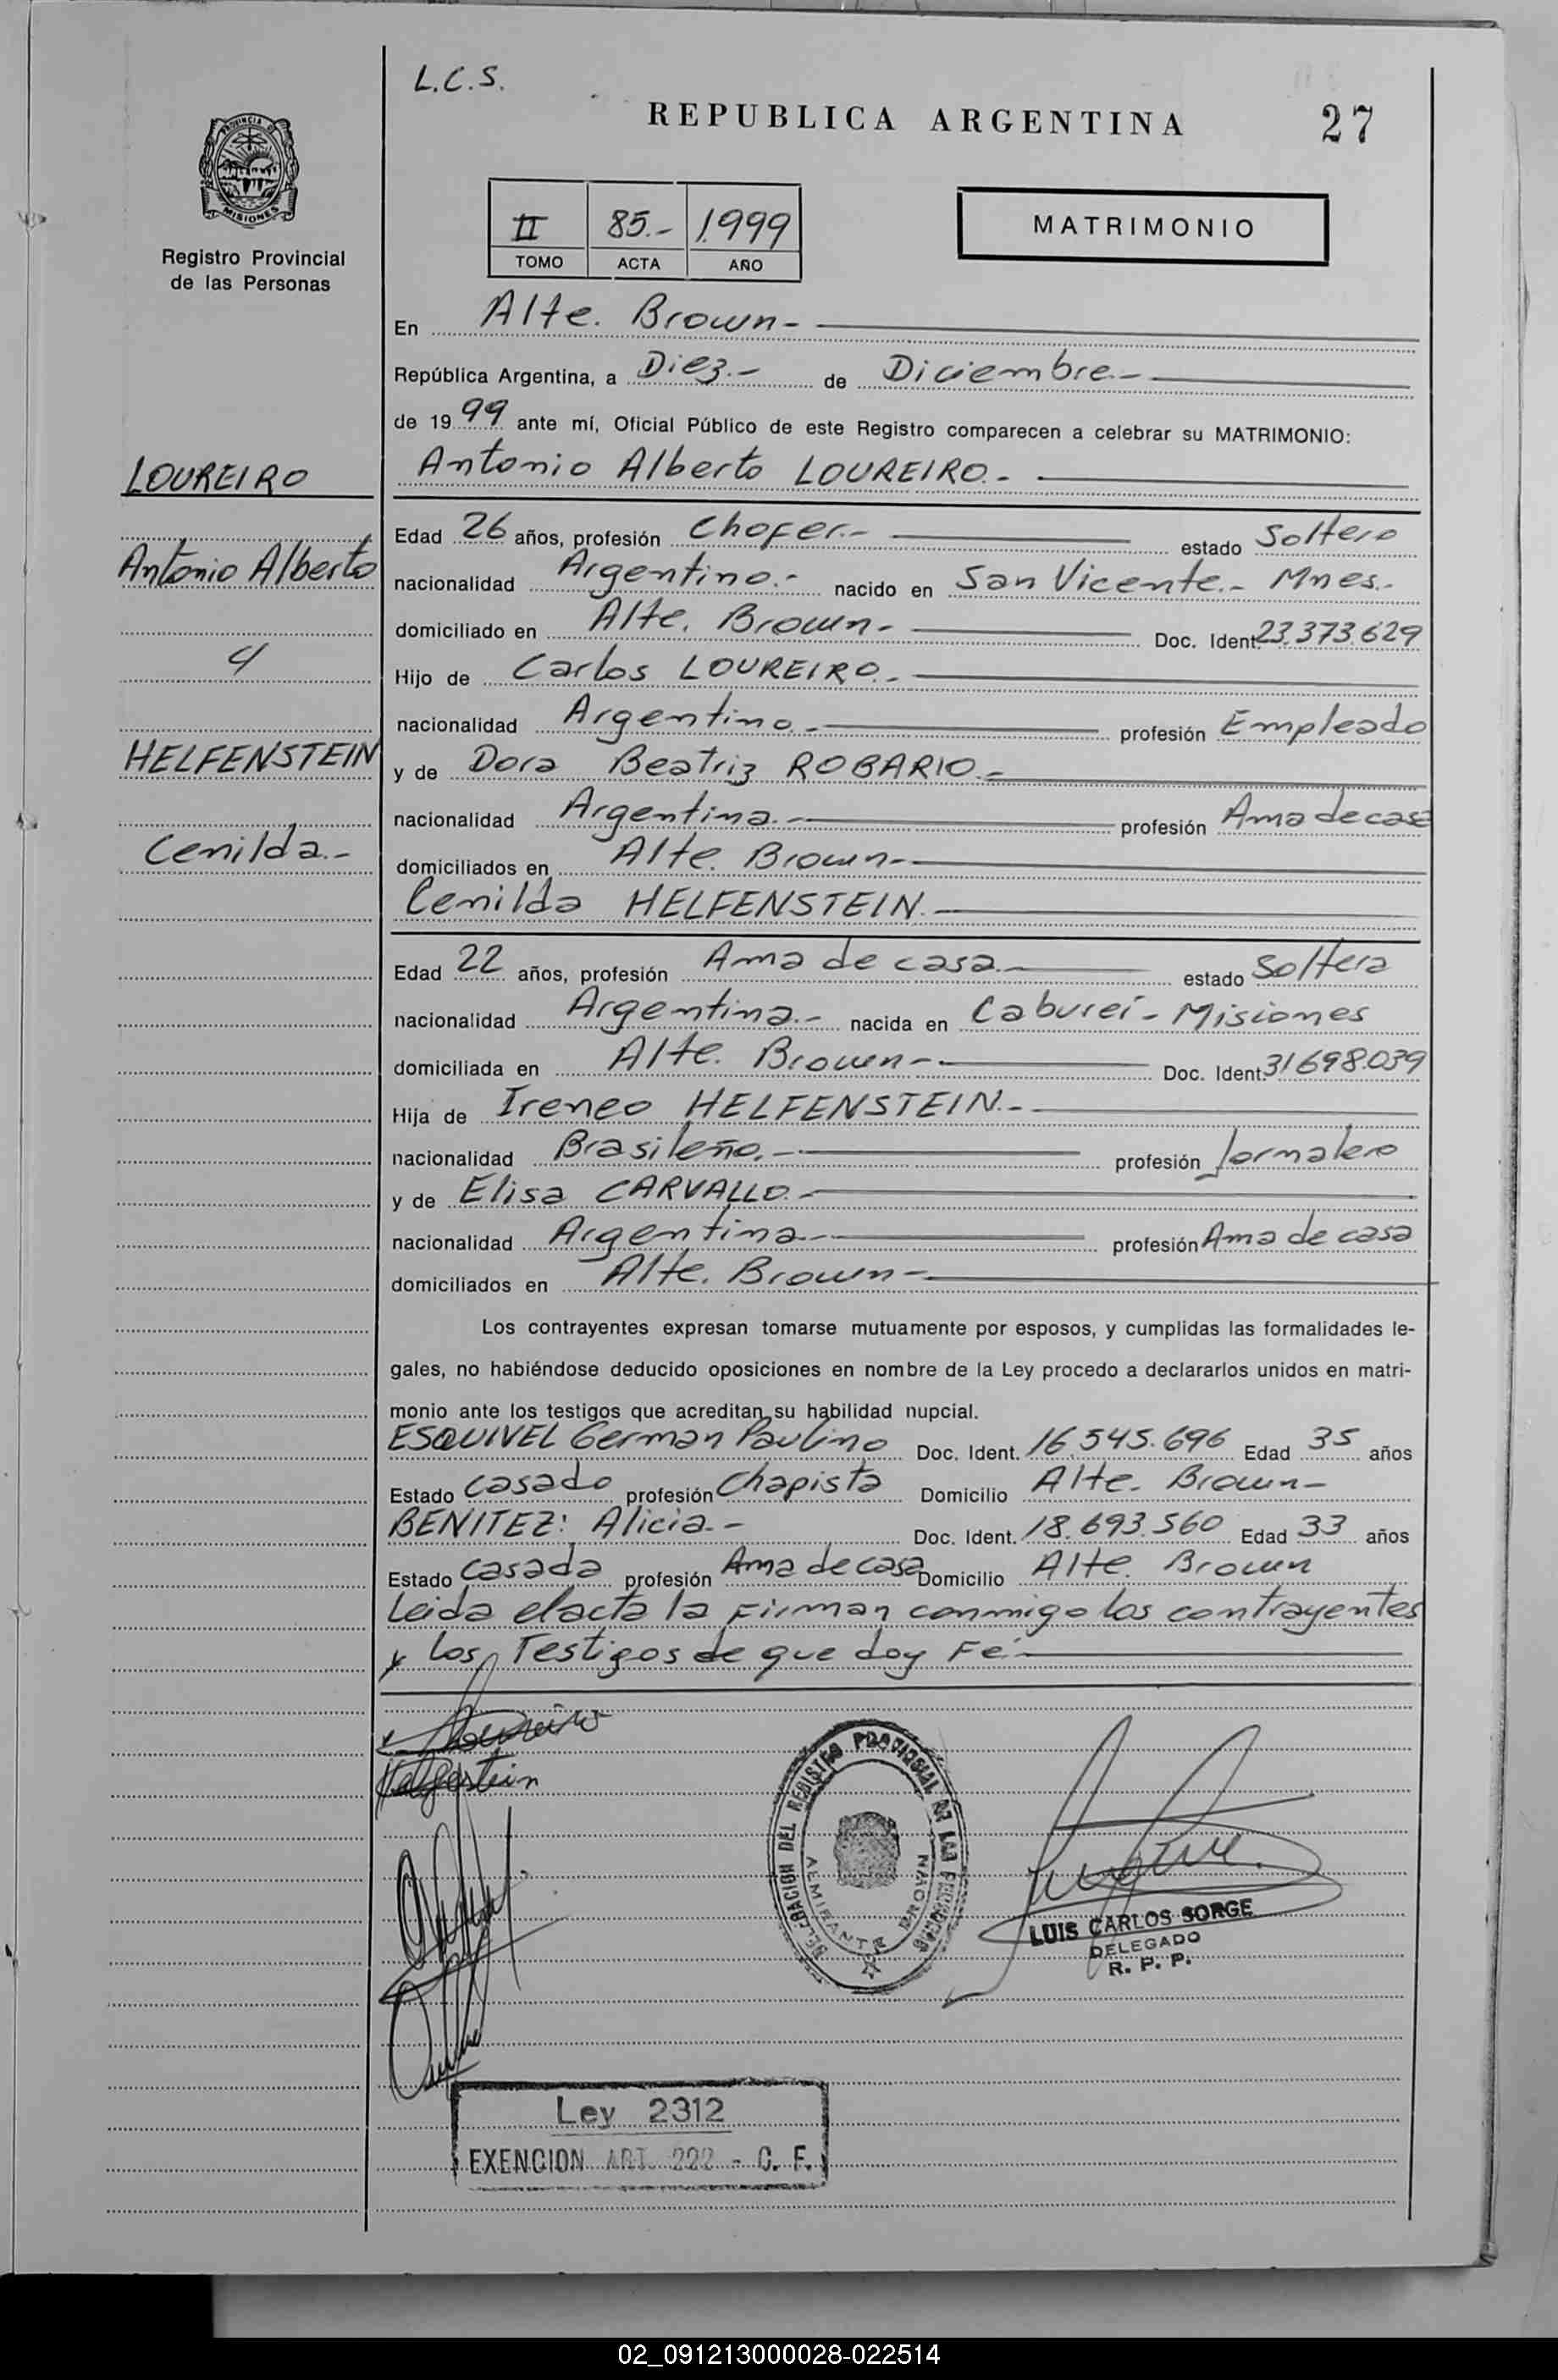 L.C.S.
REPUBLICA ARGENTINA
27
PROVINCIA DE
MISIONES
Registro Provincial
de las Personas
II 85.- 1.999
TOMO ACTA AÑO
MATRIMONIO
En Alte. Brown-
República Argentina, a Diez.- de Diciembre.-
de 19 99 ante mí, Oficial Público de este Registro comparecen a celebrar su MATRIMONIO:
LOUREIRO
Antonio Alberto LOUREIRO.-
Edad 26 años, profesión Chofer.- estado Soltero
Antonio Alberto
nacionalidad Argentino.- nacido en San Vicente.- Mnes.-
domiciliado en Alte. Brown.- Doc. Ident. 23.373.629
Hijo de Carlos LOUREIRO.-
nacionalidad Argentino.- profesión Empleado
HELFENSTEIN
y de Dora Beatriz ROBARIO.-
nacionalidad Argentina.- profesión Ama de casa
Cenilda.-
domiciliados en Alte. Brown-
Cenilda HELFENSTEIN.-
Edad 22 años, profesión Ama de casa.- estado Soltera
nacionalidad Argentina.- nacida en Cabureí- Misiones
domiciliada en Alte. Brown- Doc. Ident. 31698.039
Hija de Ireneo HELFENSTEIN.-
nacionalidad Brasileño.- profesión Jornalero
y de Elisa CARVALLO.-
nacionalidad Argentina.- profesión Ama de casa
domiciliados en Alte. Brown-
Los contrayentes expresan tomarse mutuamente por esposos, y cumplidas las formalidades le-
gales, no habiéndose deducido oposiciones en nombre de la Ley procedo a declararlos unidos en matri-
monio ante los testigos que acreditan su habilidad nupcial.
ESQUIVEL German Paulino Doc. Ident. 16.545.696 Edad 35 años
Estado Casado profesión Chapista Domicilio Alte. Brown-
BENITEZ: Alicia.- Doc. Ident. 18.693.560 Edad 33 años
Estado Casada profesión Ama de casa Domicilio Alte. Brown
Leida el acta la Firman conmigo los contrayentes
y los Testigos de que doy Fé-
Loureiro
Helfestein
DELEGACION DEL REGISTRO PROVINCIAL DE LAS PERSONAS
ALMIRANTE BROWN
LUIS CARLOS SORGE
DELEGADO
R. P. P.
Ley 2312
EXENCION ART. 222 - C. F.
02_091213000028-022514